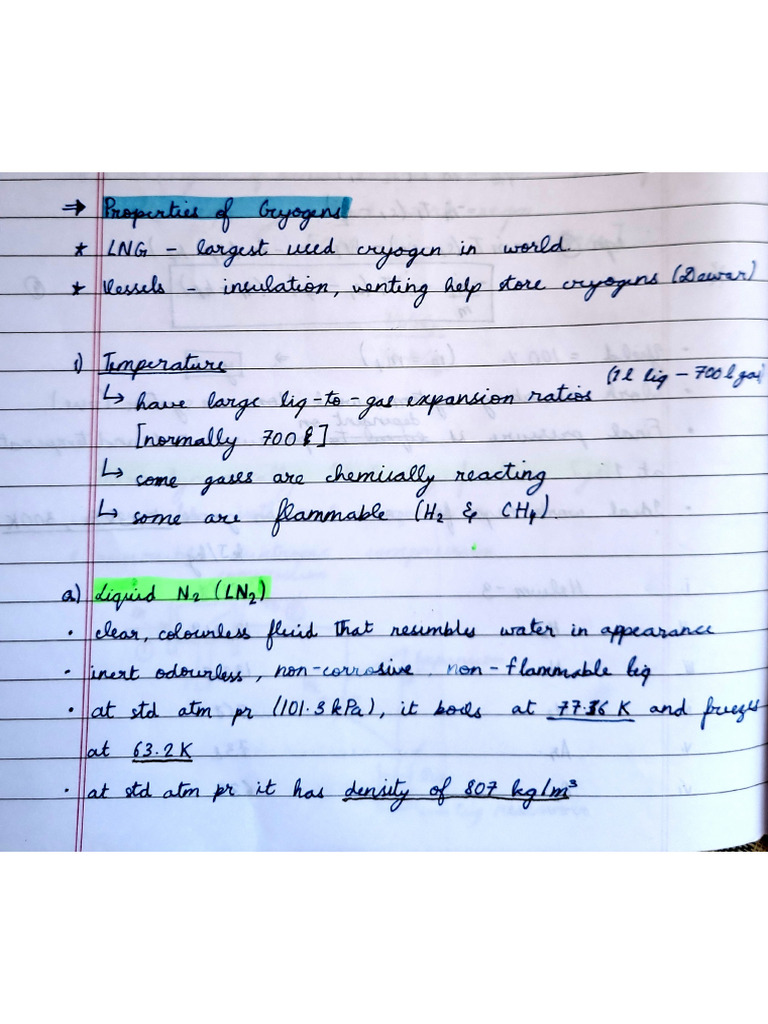 ⇒ Properties of Cryogens
* LNG - largest used cryogen in world.
* Vessels - insulation, venting help store cryogens (Dewar)
1) Temperature
(1 l liq - 700 l gas)
↳ have large liq-to-gas expansion ratios
[normally 700 l]
↳ some gases are chemically reacting
↳ some are flammable (H2 & CH4).
a) Liquid N2 (LN2)
· clear, colourless fluid that resembles water in appearance
· inert odourless, non-corrosive, non-flammable liq
· at std atm pr (101.3 kPa), it boils at 77.36 K and freezes
at 63.2 K
· at std atm pr it has density of 807 kg/m³